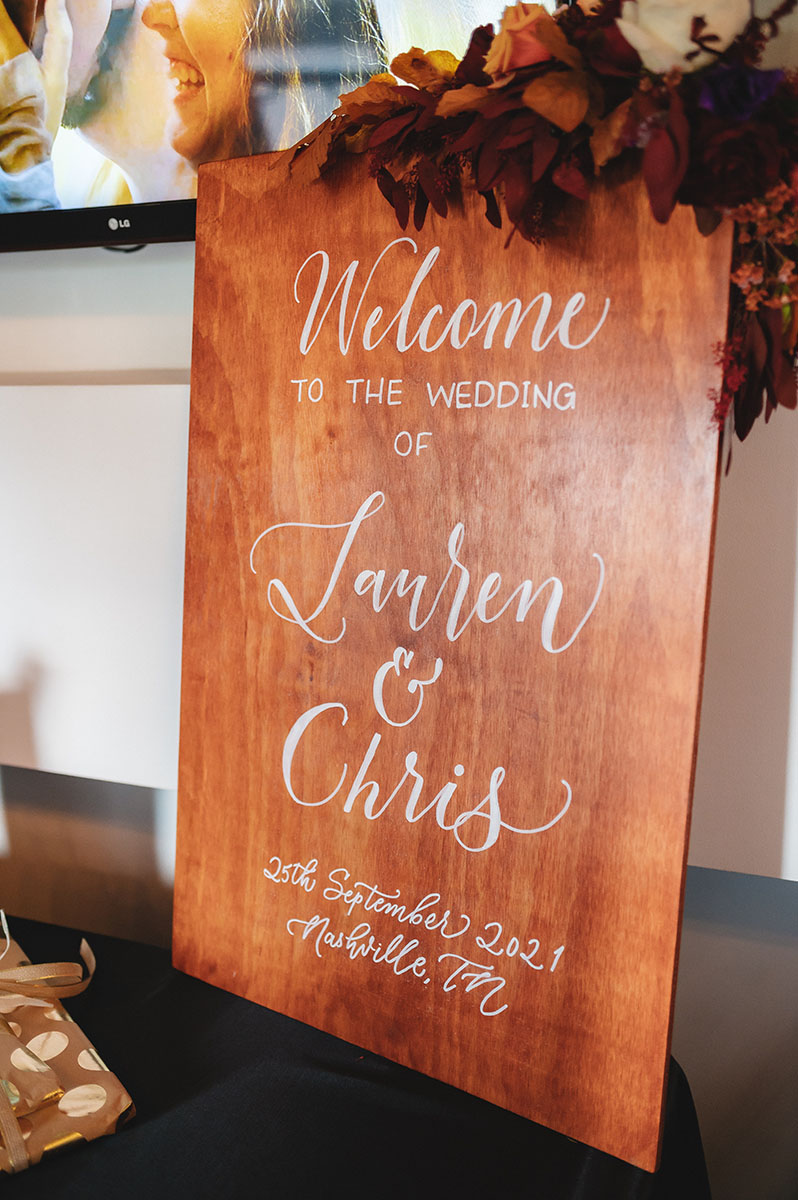 LG
Welcome
TO THE WEDDING
OF
Lauren
&
Chris
25th September 2021
Nashville, TN